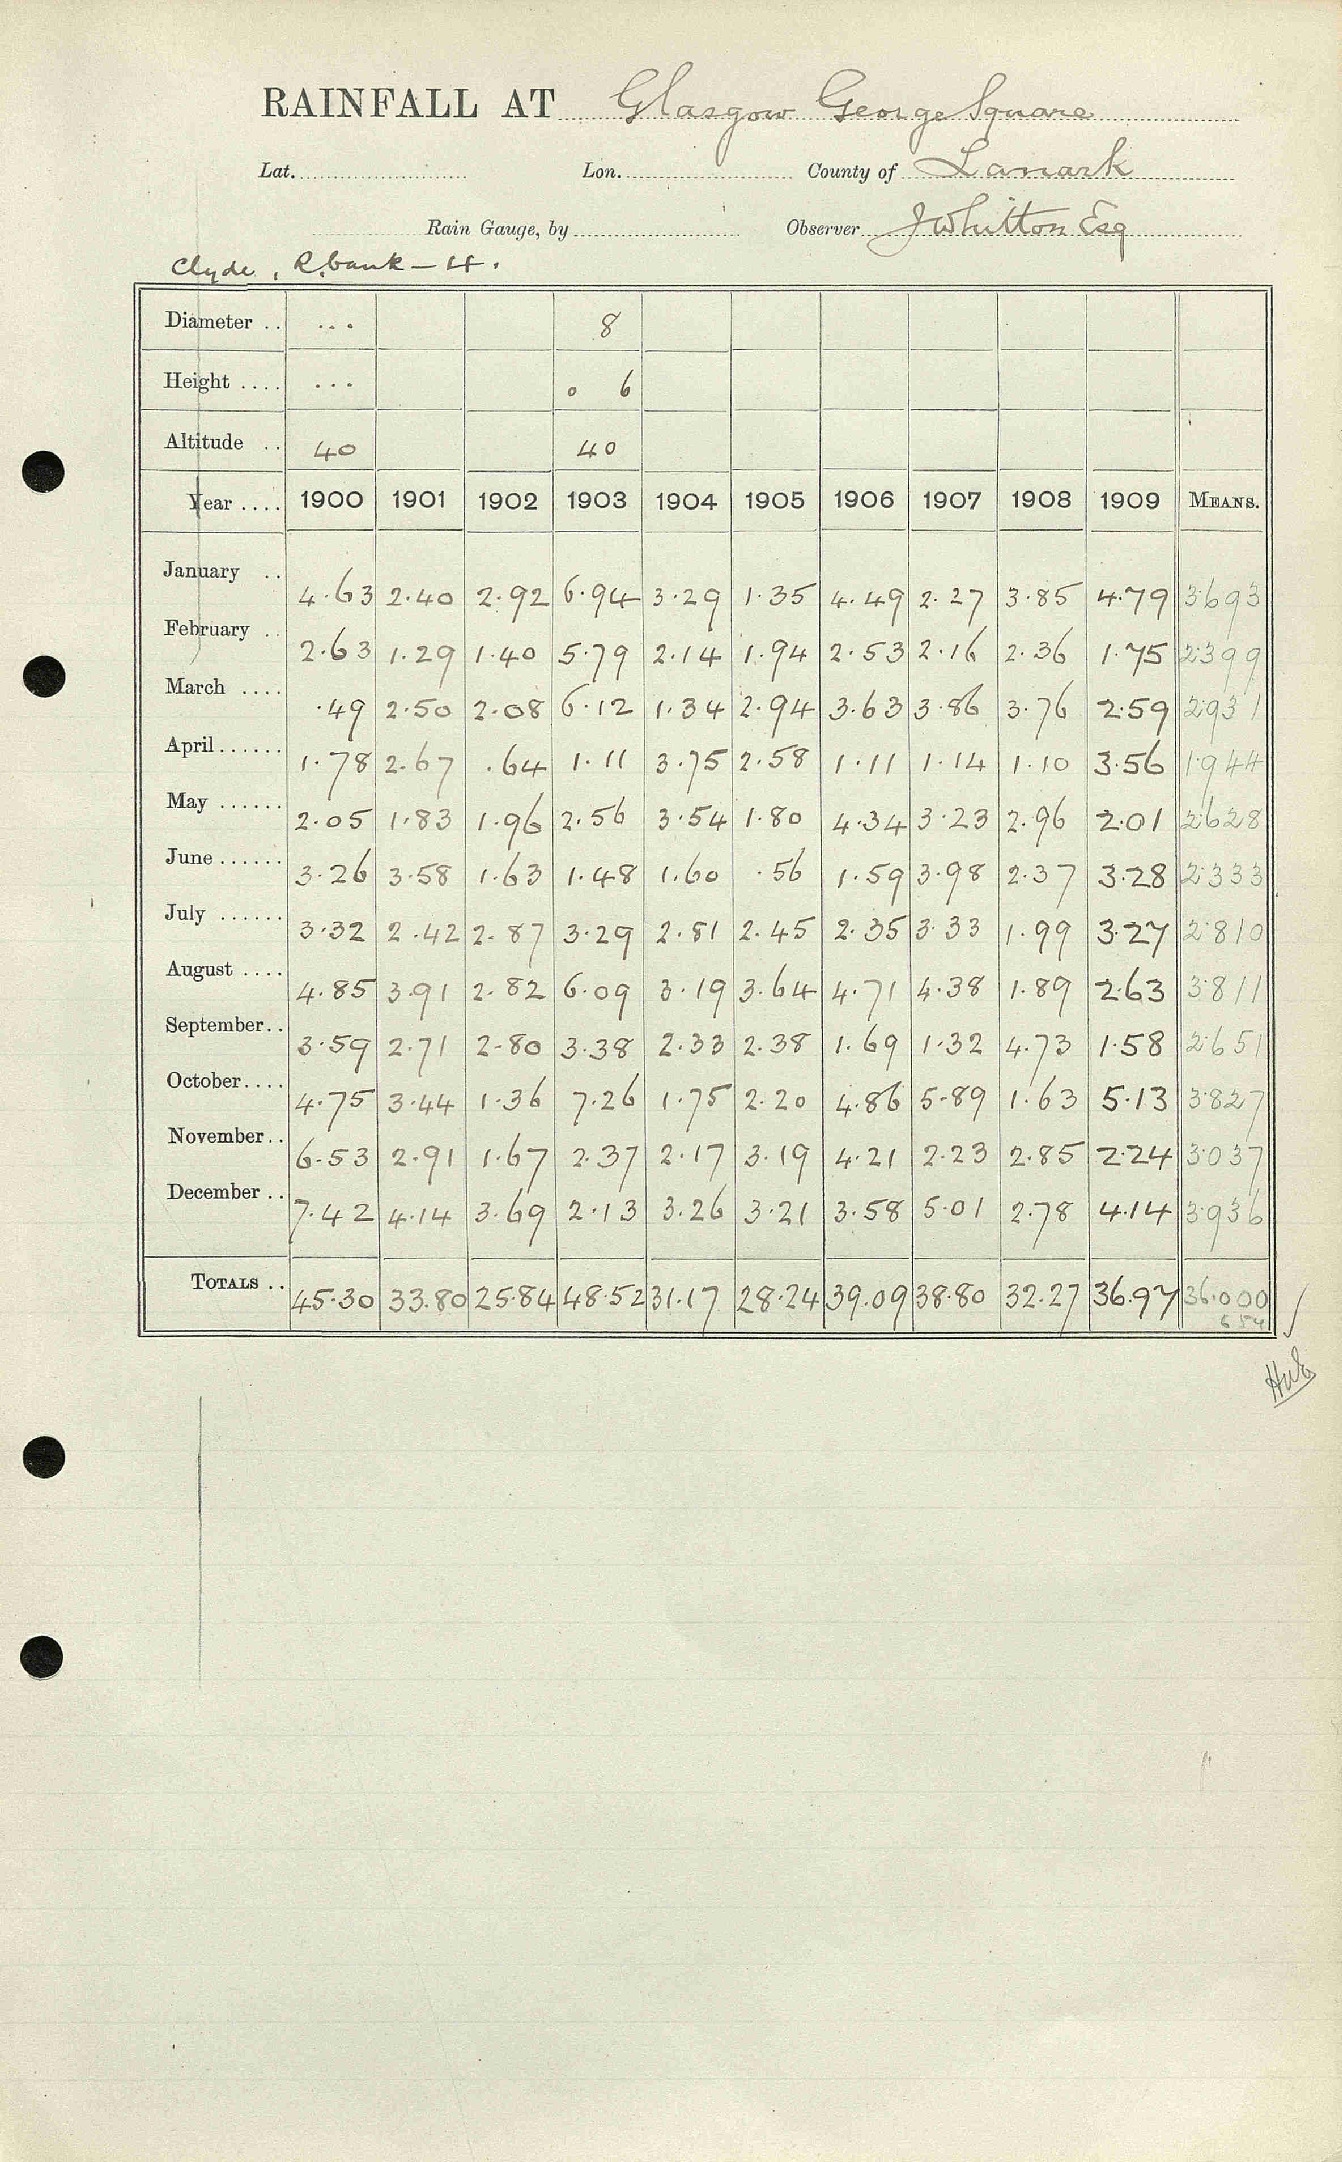 RAINFALL AT Glasgow George Square
Lat. Lon. County of Lanark
Rain Gauge, by Observer J Whitton Esq
Clyde, R. bank – 4.
Diameter .. ... 8
Height .... ... 0 6
Altitude .. 40 40
Year .... 1900 1901 1902 1903 1904 1905 1906 1907 1908 1909 MEANS.
January .. 4.63 2.40 2.92 6.94 3.29 1.35 4.49 2.27 3.85 4.79 3.693
February .. 2.63 1.29 1.40 5.79 2.14 1.94 2.53 2.16 2.36 1.75 2.399
March .... .49 2.50 2.08 6.12 1.34 2.94 3.63 3.86 3.76 2.59 2.931
April ...... 1.78 2.67 .64 1.11 3.75 2.58 1.11 1.14 1.10 3.56 1.944
May ...... 2.05 1.83 1.96 2.56 3.54 1.80 4.34 3.23 2.96 2.01 2.628
June ...... 3.26 3.58 1.63 1.48 1.60 .56 1.59 3.98 2.37 3.28 2.333
July ...... 3.32 2.42 2.87 3.29 2.81 2.45 2.35 3.33 1.99 3.27 2.810
August .... 4.85 3.91 2.82 6.09 3.19 3.64 4.71 4.38 1.89 2.63 3.811
September.. 3.59 2.71 2.80 3.38 2.33 2.38 1.69 1.32 4.73 1.58 2.651
October.... 4.75 3.44 1.36 7.26 1.75 2.20 4.86 5.89 1.63 5.13 3.827
November.. 6.53 2.91 1.67 2.37 2.17 3.19 4.21 2.23 2.85 2.24 3.037
December .. 7.42 4.14 3.69 2.13 3.26 3.21 3.58 5.01 2.78 4.14 3.936
TOTALS .. 45.30 33.80 25.84 48.52 31.17 28.24 39.09 38.80 32.27 36.97 36.000